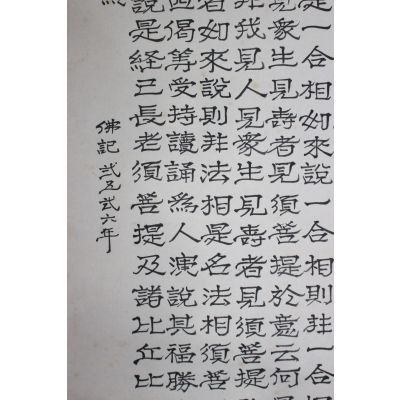 是一合相如來說一合相則非一合相
見衆生見壽者見須菩提於意云何是
非我見人見衆生見壽者見須菩提
者如來說則非法相是名法相須菩
偈等受持讀誦為人演說其福勝
說是經已長老須菩提及諸比丘比
佛記 弍五弍六年